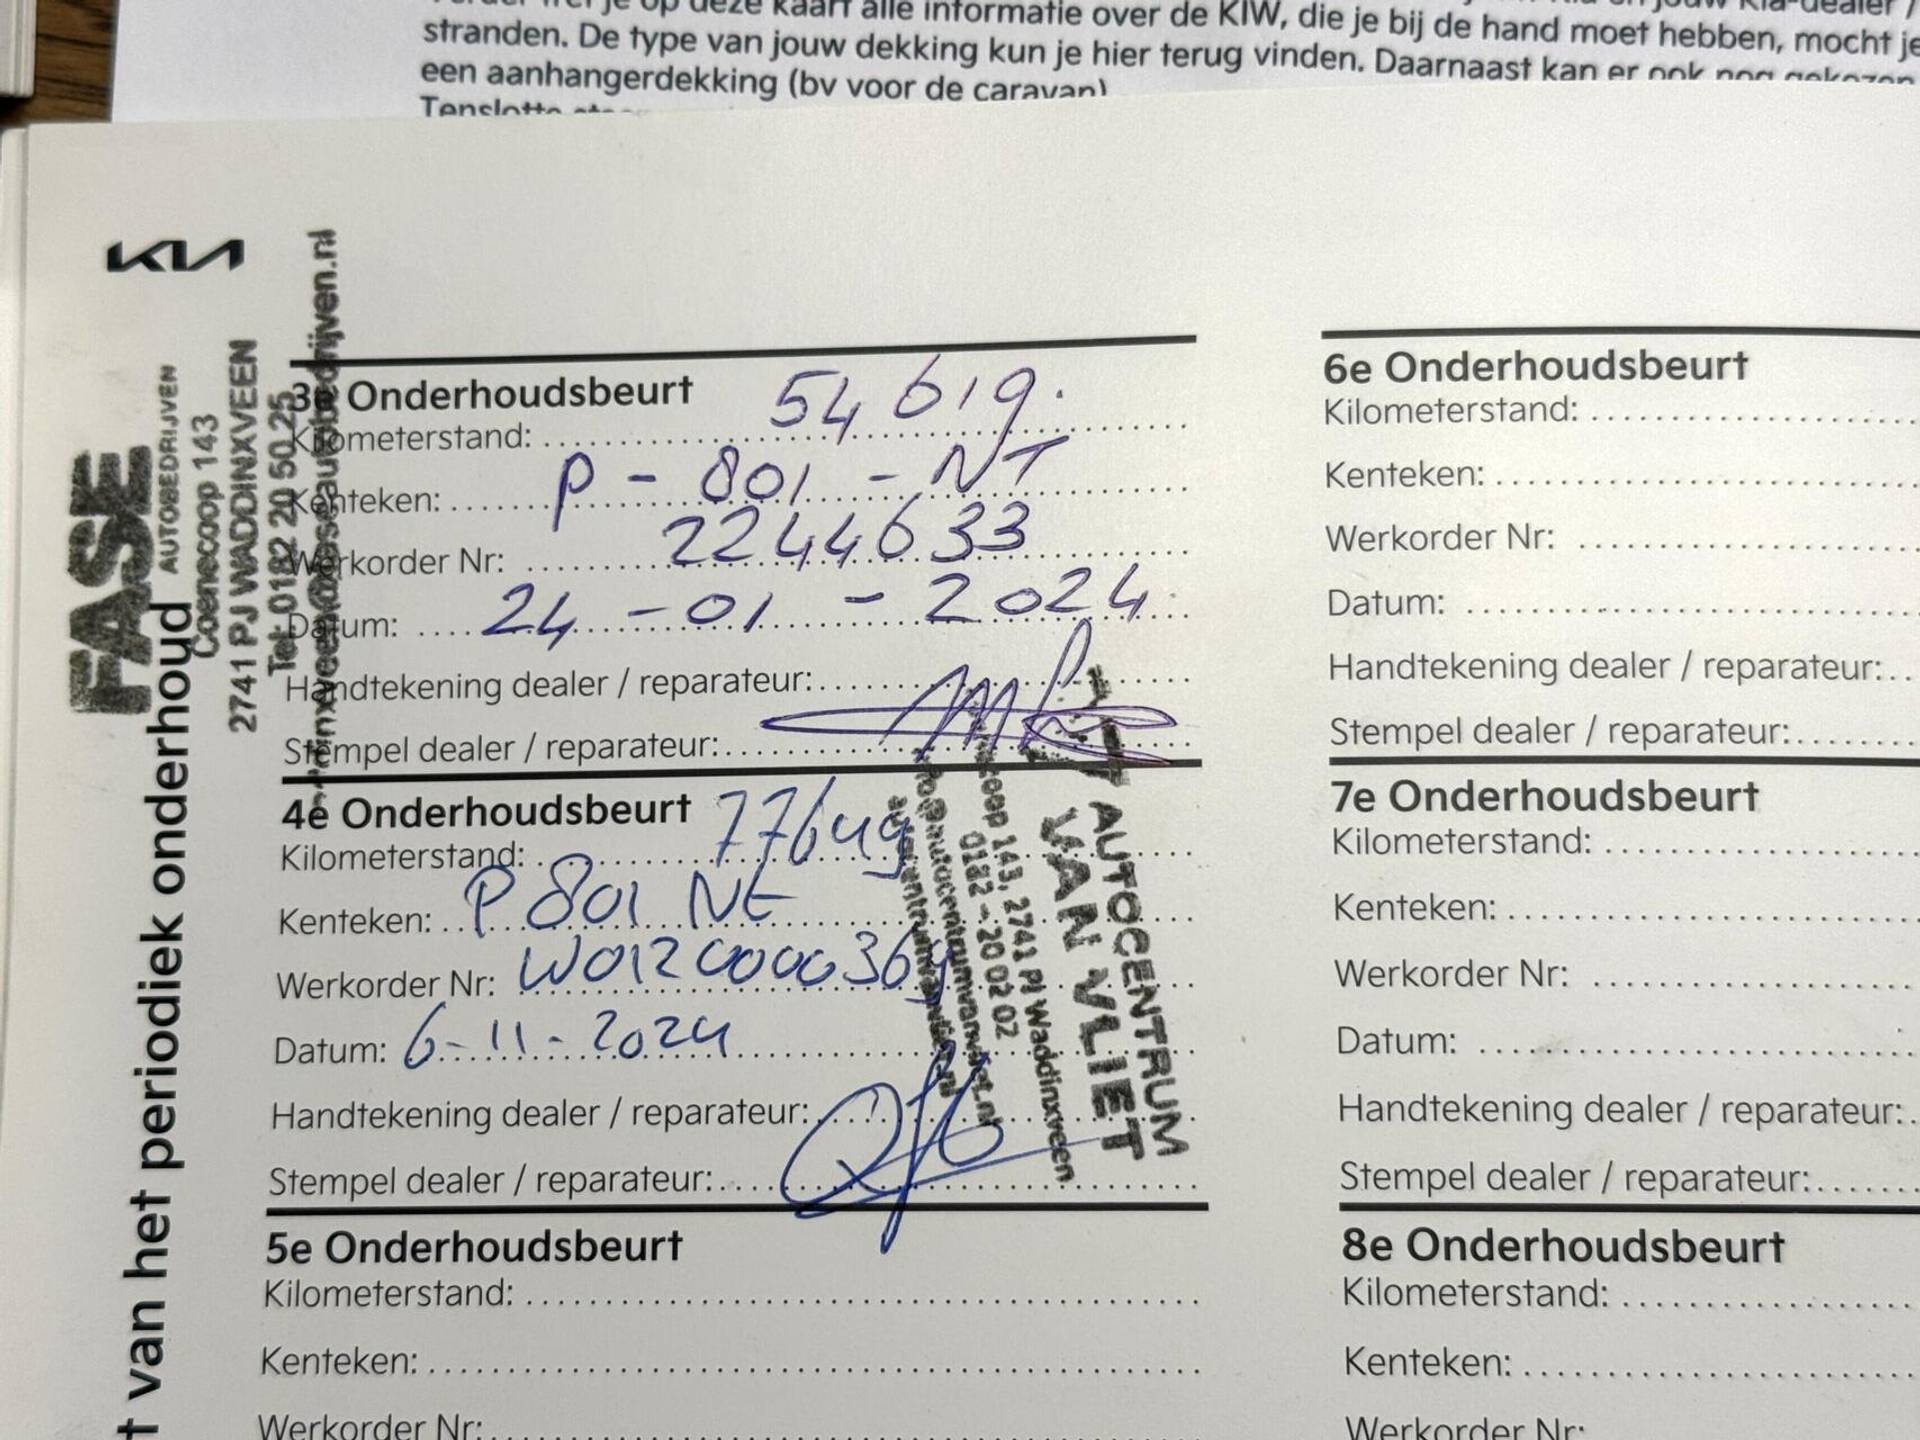 op deze kaart alle informatie over de KIW, die je bij de hand moet hebben, mocht je
stranden. De type van jouw dekking kun je hier terug vinden. Daarnaast kan er ook nog gekozen
een aanhangerdekking (bv voor de caravan)
Tenslotte
KIA
FASE
AUTOBEDRIJVEN
Coenecoop 143
2741 PJ WADDINXVEEN
Tel: 0182 20 50 25
t van het periodiek onderhoud
3e Onderhoudsbeurt
Kilometerstand: 54619.
Kenteken: P - 801 - NT
Werkorder Nr: 2244633
Datum: 24 - 01 - 2024
Handtekening dealer / reparateur:
Stempel dealer / reparateur:
4e Onderhoudsbeurt
Kilometerstand: 77649
Kenteken: P 801 NT
Werkorder Nr: WO12000036
Datum: 6-11-2024
Handtekening dealer / reparateur:
Stempel dealer / reparateur:
AUTOCENTRUM
VAN VLIET
143, 2741 PJ Waddinxveen
0182 - 20 02 02
5e Onderhoudsbeurt
Kilometerstand:
Kenteken:
Werkorder Nr:
6e Onderhoudsbeurt
Kilometerstand:
Kenteken:
Werkorder Nr:
Datum:
Handtekening dealer / reparateur:
Stempel dealer / reparateur:
7e Onderhoudsbeurt
Kilometerstand:
Kenteken:
Werkorder Nr:
Datum:
Handtekening dealer / reparateur:
Stempel dealer / reparateur:
8e Onderhoudsbeurt
Kilometerstand:
Kenteken:
Werkorder Nr: